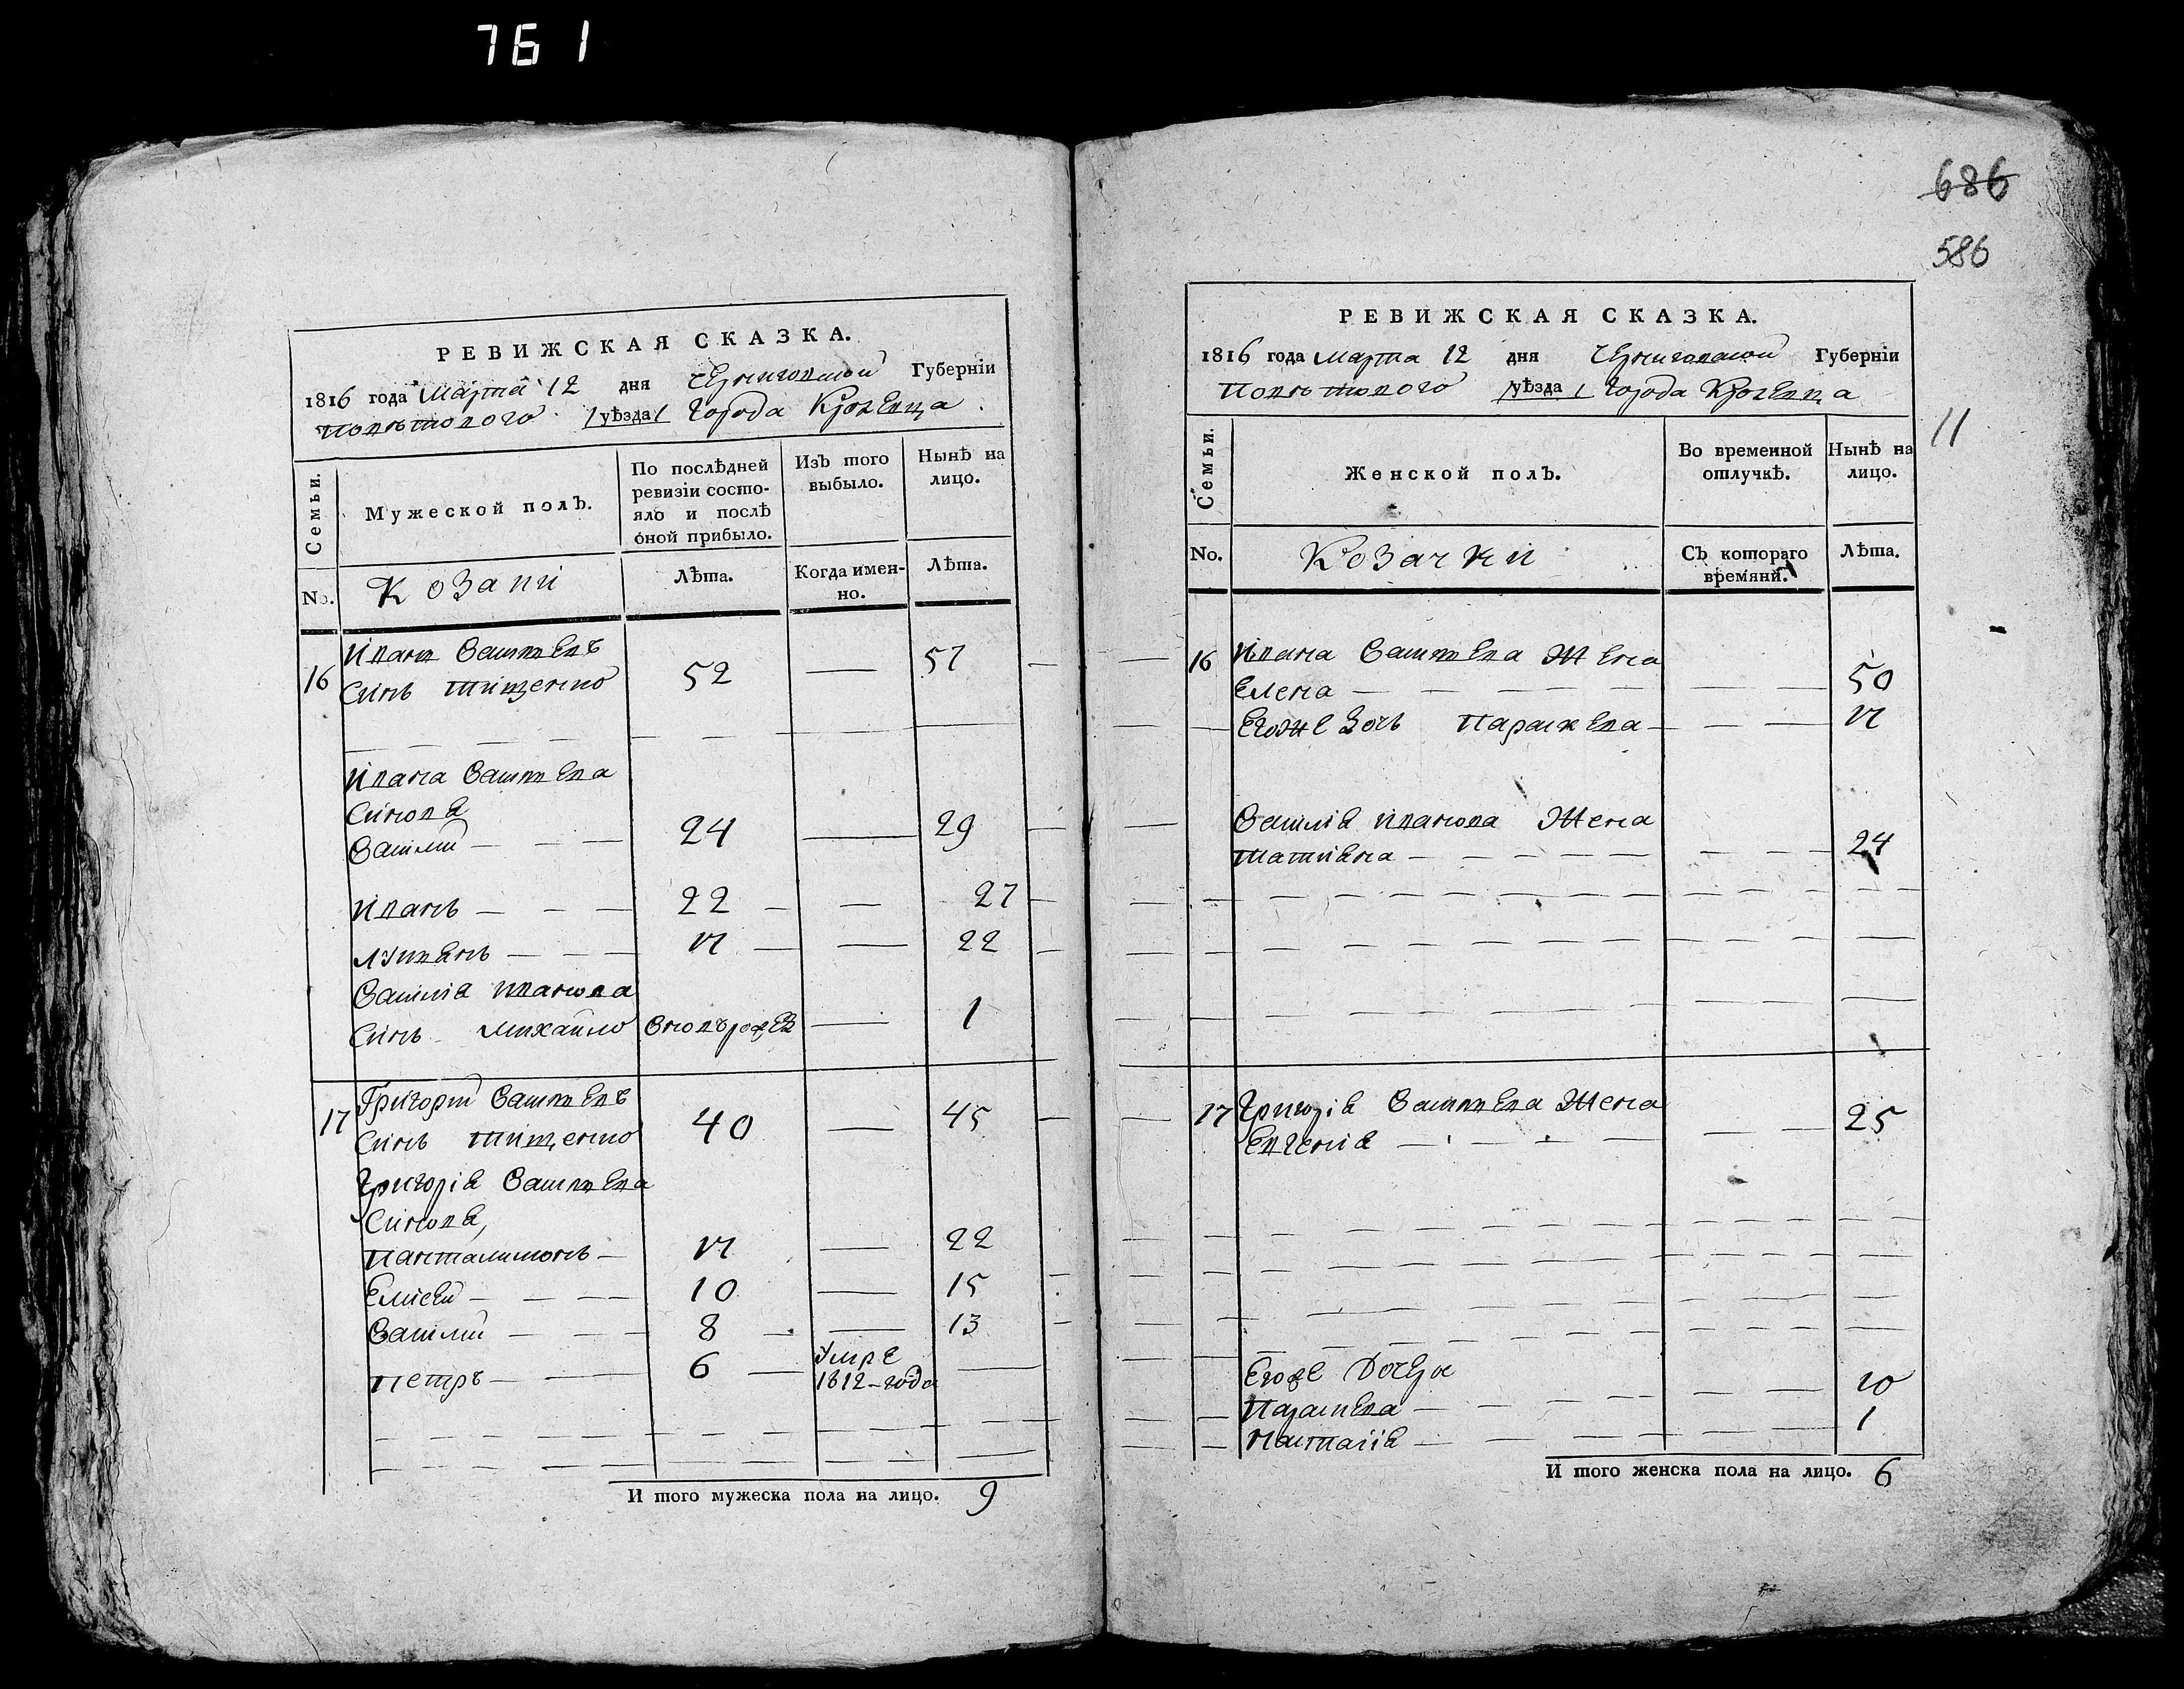 761
РЕВИЖСКАЯ СКАЗКА.
1816 года Марта 12 дня Черниговской Губерніи
Повѣтового /уѣзда/ Города Кролевца
Семьи.
Мужеской полъ.
По послѣдней ревизіи состо-
яло и послѣ
оной прибыло.
Изъ того
выбыло.
Нынѣ на
лицо.
No.
Козаки
Лѣта.
Когда имен-
но.
Лѣта.
Иванъ
16 Синъ Тищенко 52 — 57
Ивана
Синове
Василий 24 — 29
Иванъ 22 — 27
17 — 22
Василія Иванова
Синъ Михайло Новорожден — 1
Григорий
17 Синъ Тищенко 40 — 45
Григорія
Синове,
Панталимонъ 17 — 22
Елисей 10 — 15
Василий 8 — 13
Петръ 6 Умре
1812-года
И того мужеска пола на лицо. 9
686
586
РЕВИЖСКАЯ СКАЗКА.
1816 года Марта 12 дня Черниговской Губерніи
Повѣтового /уѣзда/ Города Кролевца
11
Семьи.
Женской полъ.
Во временной
отлучкѣ.
Нынѣ на
лицо.
No.
Козачки
Съ котораго
времяни.
Лѣта.
16 Ивана Жена
Елена 50
Егоже Дочь Параскева 17
Василія Иванова Жена
Татиена 24
17 Григорія Жена
Евгения 25
Егоже Дочери
Параскева 10
Настасія 1
И того женска пола на лицо. 6